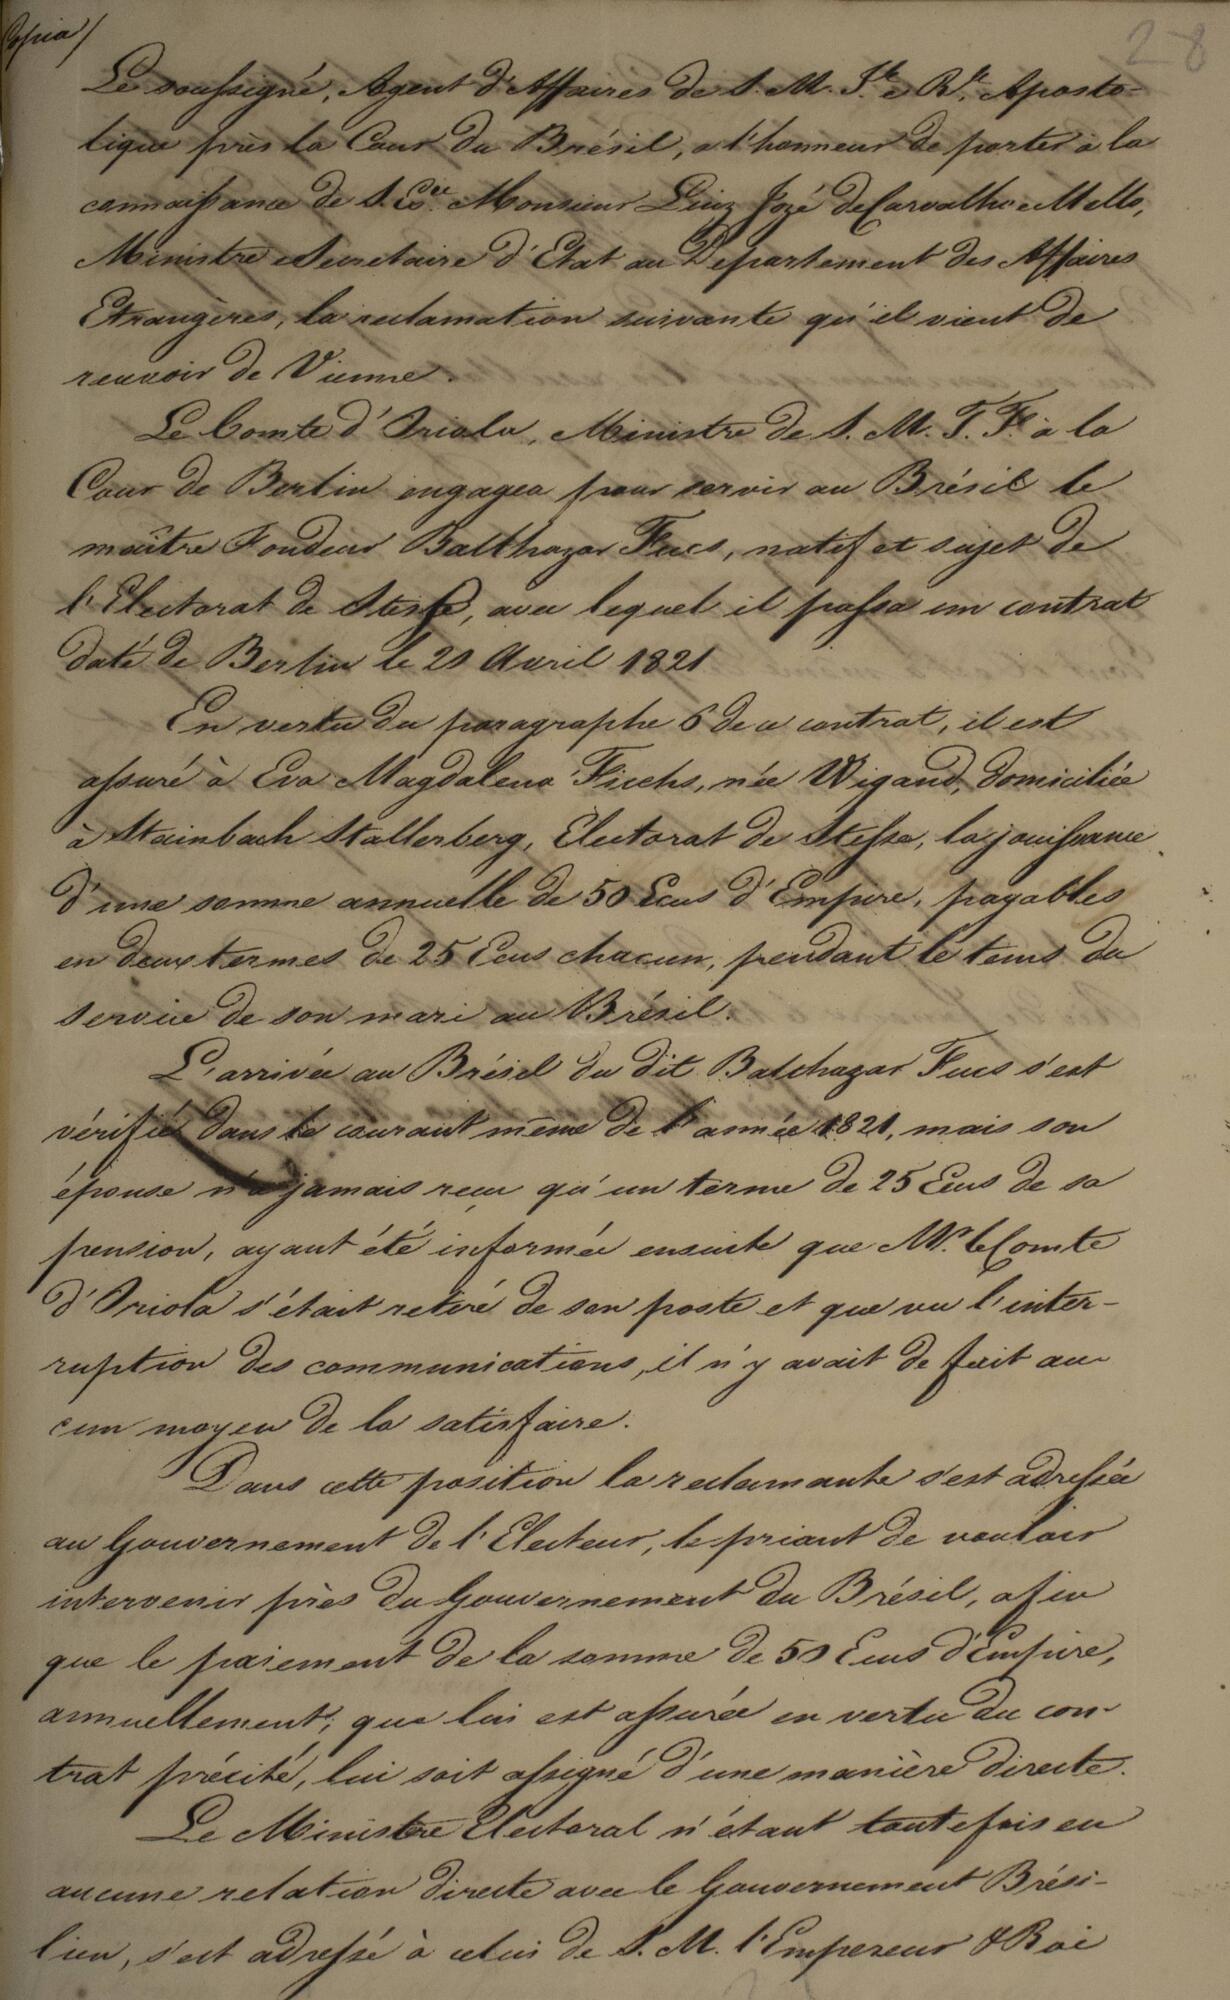 Copia/
28
Le soussigné, Agent d'Affaires de S. M. I.le e R.le Aposto-
lique près la Cour du Brésil, a l'honneur de porter à la
connaissance de S. Ex.ce Monsieur Luiz Jozé de Carvalho e Mello,
Ministre e Secretaire d'Etat au Departement des Affaires
Etrangères, la reclamation suivante qu'il vient de
recevoir de Vienne.
Le Comte d'Oriola, Ministre de S. M. T. F. à la
Cour de Berlin engagea pour servir au Brésil le
maître Fondeur Balthazar Fucs, natif et sujet de
l'Electorat de Stesse, avec lequel il passa un contrat
daté de Berlin le 21 Avril 1821
En vertu du paragraphe 6 de ce contrat, il est
assuré à Eva Magdalena Fuchs, née Wigand, domiciliée
à Stainbach Stallerberg, Electorat de Stesse, la jouissance
d'une somme annuelle de 50 Ecus d'Empire, payables
en deux termes de 25 Ecus chacun, pendant le tems du
service de son mari au Brésil.
L'arrivée au Brésil du dit Balthazar Fucs s'est
vérifiée dans le courant même de l'année 1821, mais son
épouse n'a jamais reçu qu'un terme de 25 Ecus de sa
pension, ayant été informée ensuite que Mr. le Comte
d'Oriola s'était retiré de son poste et que vu l'inter-
ruption des communications, il n'y avait de fait au-
cun moyen de la satisfaire.
Dans cette position la reclamante s'est adressée
au Gouvernement de l'Electeur, le priant de vouloir
intervenir près du Gouvernement du Brésil, afin
que le paiement de la somme de 50 Ecus d'Empire,
annuellement, que lui est assurée en vertu du con-
trat précité, lui soit assigné d'une manière directe.
Le Ministre Electoral n'étant toutefois en
aucune relation directe avec le Gouvernement Brési-
lien, s'est adressé à celui de S. M. l'Empereur & Roi